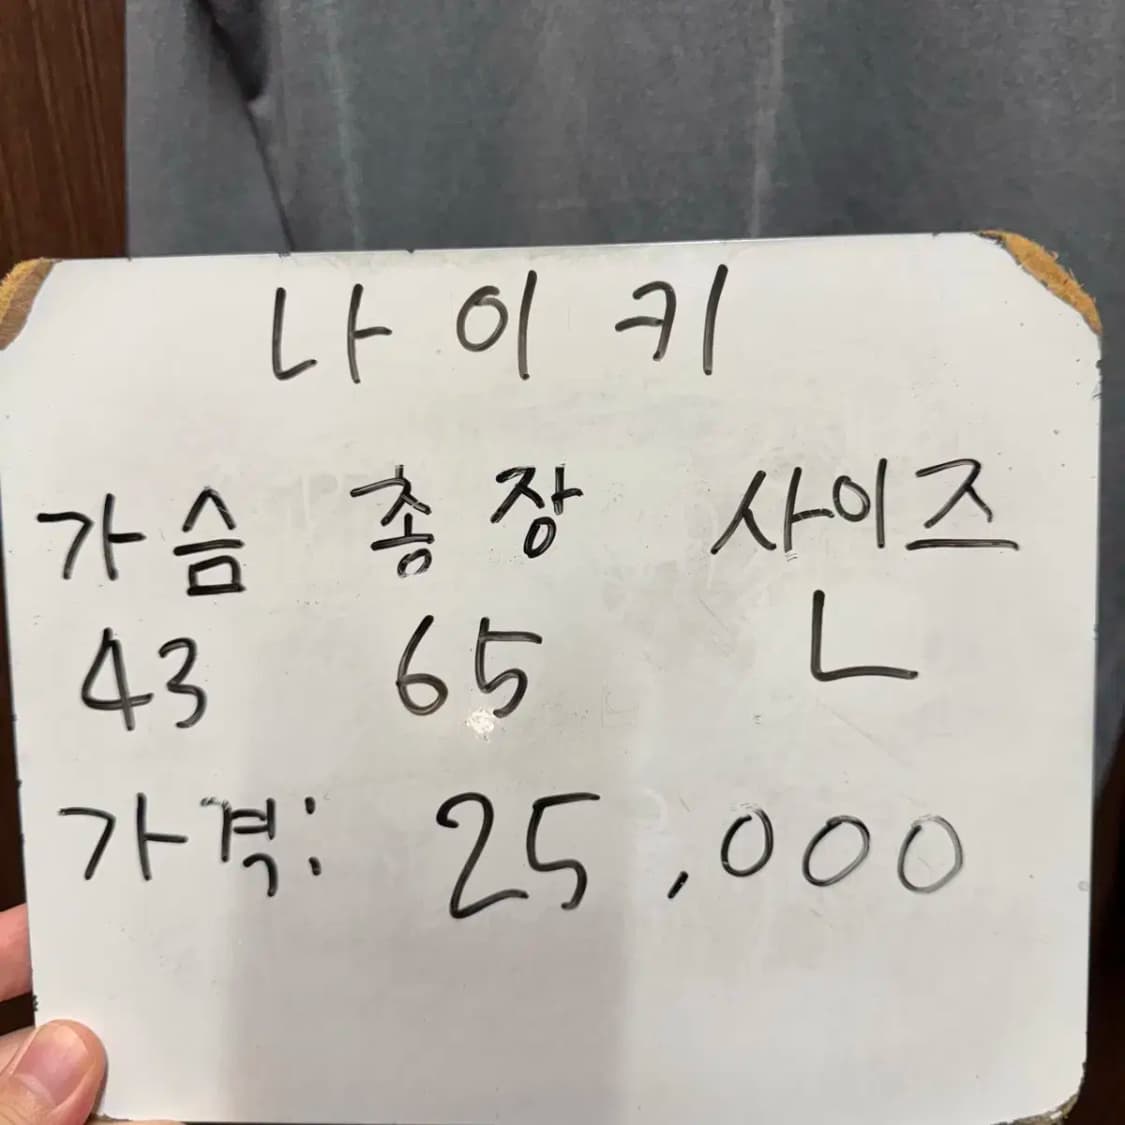 나이키
가슴 총장 사이즈
43 65 L
가격: 25,000